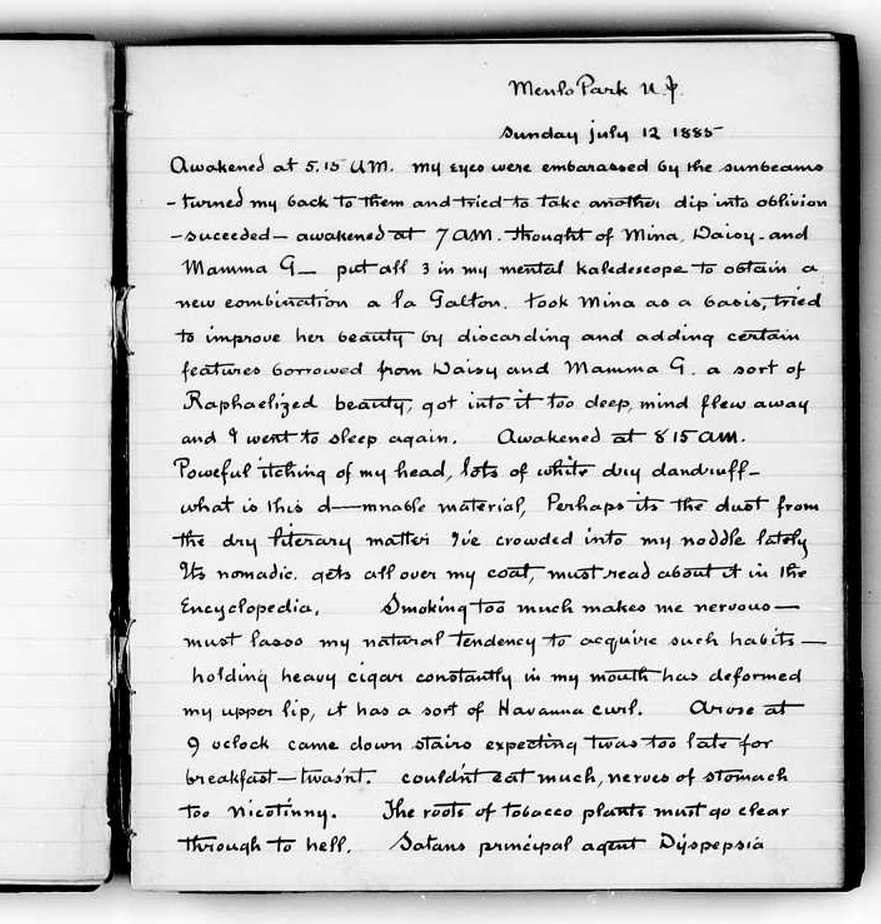 Menlo Park N.J.
Sunday July 12 1885
Awakened at 5.15 AM. My eyes were embarassed by the sunbeams
- turned my back to them and tried to take another dip into oblivion
- succeeded - awakened at 7 AM. thought of Mina, Daisy, and
Mamma G— put all 3 in my mental kaledescope to obtain a
new combination a la Galton. took Mina as a basis, tried
to improve her beauty by discarding and adding certain
features borrowed from Daisy and Mamma G. a sort of
Raphaelized beauty, got into it too deep, mind flew away
and I went to sleep again. Awakened at 8 15 AM.
Poweful itching of my head, lots of white dry dandruff -
what is this d—mnable material, Perhaps its the dust from
the dry literary matter I've crowded into my noddle lately
Its nomadic. gets all over my coat, must read about it in the
Encyclopedia. Smoking too much makes me nervous —
must lasso my natural tendency to acquire such habits —
holding heavy cigar constantly in my mouth has deformed
my upper lip, it has a sort of Havanna curl. Arose at
9 oclock came down stairs expecting twas too late for
breakfast - twasn't. couldn't eat much, nerves of stomach
too nicotinny. The roots of tobacco plants must go clear
through to hell. Satans principal agent Dyspepsia